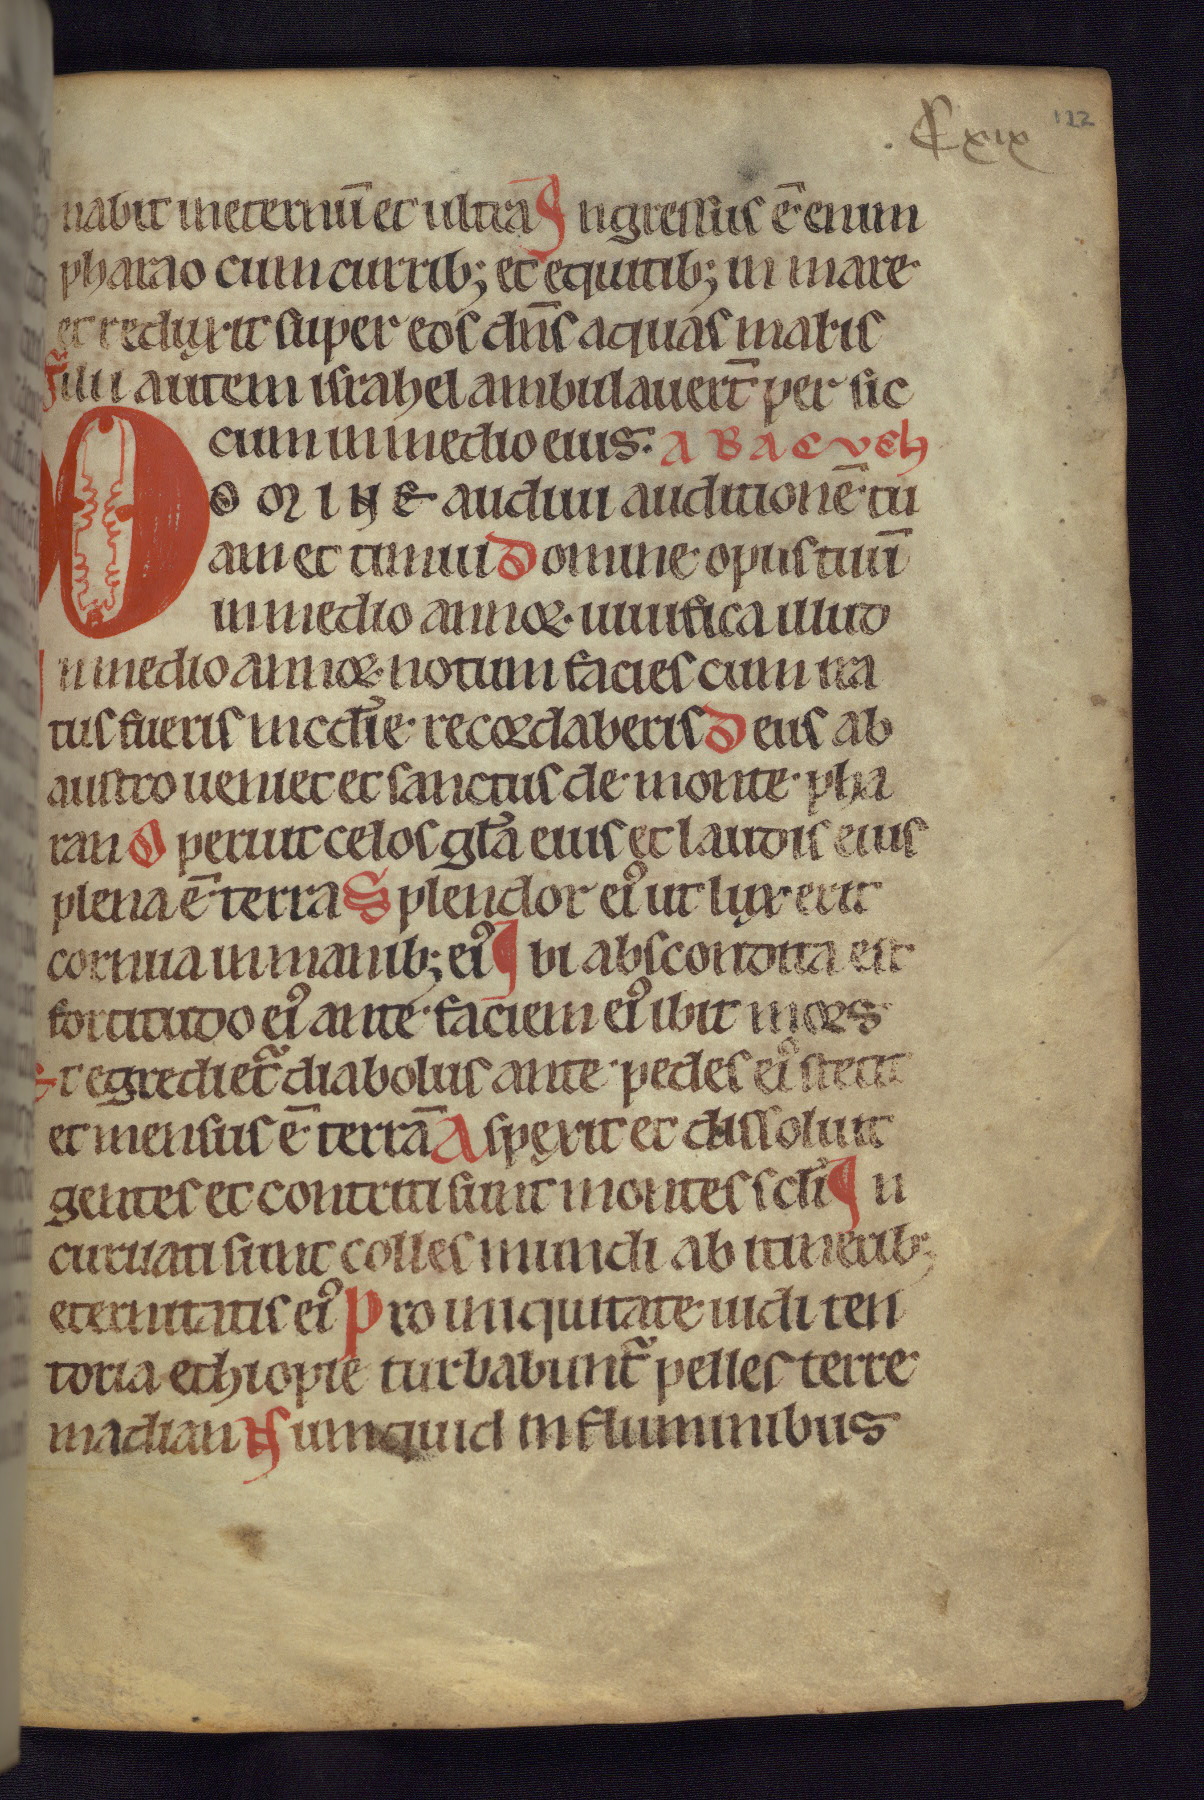 .Cxıx 122
nabit in eternū et ultra Ingressus ē enim
pharao cum currib; et equitib; in mare
et reduxit super eos dn̄s aquas maris
Filii autem israhel ambulauer̄t per sic
cum in medio eius: ABACVCH
DOMINE audiui auditionē tu
am et timui Domine opus tuū
in medio annoꝝ uiuifica illud
In medio annoꝝ notum facies cum ira
tus fueris mcd̄ie recordaberis Deus ab
austro ueniet et sanctus de monte pha
ran Operuit celos gl̄a eius et laudis eius
plena ē terra Splendor eiꝰ ut lux erit
cornua in manib; eiꝰ Ibi abscondita est
fortitudo eiꝰ ante faciem eiꝰ ibit mors
Et egrediet᷑ diabolus ante pedes eiꝰ stetit
et mensus ē terrā Aspexit et dissoluit
gentes et contriti sunt montes sc̄li In
curuati sunt colles mundi ab itinerib;
eternitatis eiꝰ Pro iniquitate uidi ten
toria ethiopie turbabunt᷑ pelles terre
madian Numquid in fluminibus